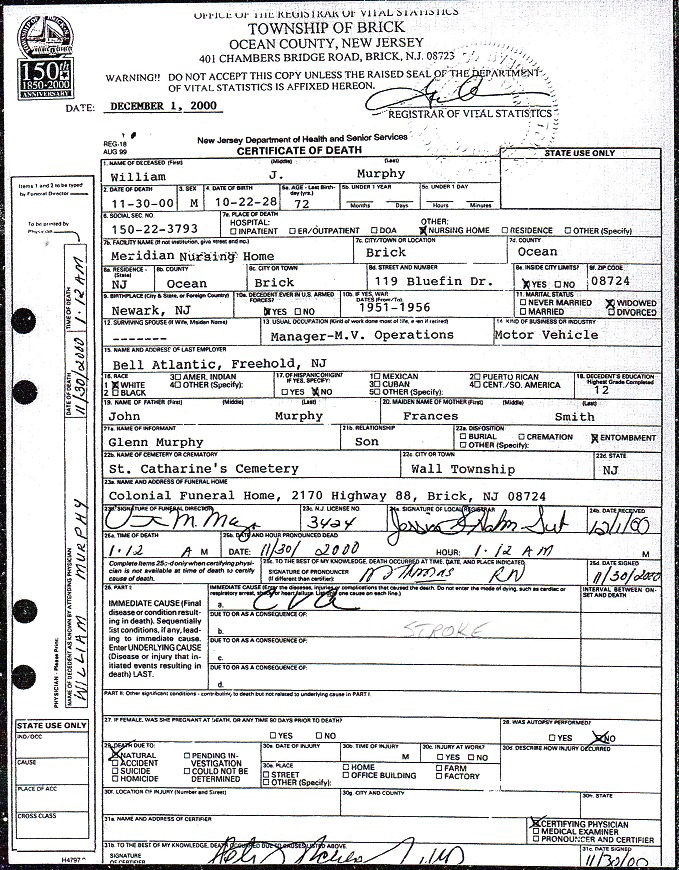 OFFICE OF THE REGISTRAR OF VITAL STATISTICS
TOWNSHIP OF BRICK
OCEAN COUNTY, NEW JERSEY
401 CHAMBERS BRIDGE ROAD, BRICK, N.J. 08723
TOWNSHIP OF BRICK
150th
1850-2000
ANNIVERSARY
WARNING!! DO NOT ACCEPT THIS COPY UNLESS THE RAISED SEAL OF THE DEPARTMENT
OF VITAL STATISTICS IS AFFIXED HEREON.
DATE: DECEMBER 1, 2000
REGISTRAR OF VITAL STATISTICS
REG-18
AUG 99
New Jersey Department of Health and Senior Services
CERTIFICATE OF DEATH
STATE USE ONLY
Items 1 and 2 to be typed
by Funeral Director
To be printed by
Physician
1. NAME OF DECEASED (First) (Middle) (Last)
William J. Murphy
2. DATE OF DEATH 3. SEX 4. DATE OF BIRTH 5a. AGE - Last Birthday (yrs.) 5b. UNDER 1 YEAR 5c. UNDER 1 DAY
11-30-00 M 10-22-28 72 Months Days Hours Minutes
6. SOCIAL SEC. NO. 7a. PLACE OF DEATH
HOSPITAL: OTHER:
150-22-3793 INPATIENT ER/OUTPATIENT DOA NURSING HOME RESIDENCE OTHER (Specify)
7b. FACILITY NAME (If not institution, give street and no.) 7c. CITY/TOWN OR LOCATION 7d. COUNTY
Meridian Nursing Home Brick Ocean
8a. RESIDENCE - (State) 8b. COUNTY 8c. CITY OR TOWN 8d. STREET AND NUMBER 8e. INSIDE CITY LIMITS? 8f. ZIP CODE
NJ Ocean Brick 119 Bluefin Dr. YES NO 08724
9. BIRTHPLACE (City & State, or Foreign Country) 10a. DECEDENT EVER IN U.S. ARMED FORCES? 10b. IF YES, WAR DATES (From/To) 11. MARITAL STATUS
Newark, NJ YES NO 1951-1956 NEVER MARRIED WIDOWED
MARRIED DIVORCED
12. SURVIVING SPOUSE (If Wife, Maiden Name) 13. USUAL OCCUPATION (Kind of work done most of life, even if retired) 14. KIND OF BUSINESS OR INDUSTRY
------- Manager-M.V. Operations Motor Vehicle
15. NAME AND ADDRESS OF LAST EMPLOYER
Bell Atlantic, Freehold, NJ
16. RACE 3 AMER. INDIAN 17. OF HISPANIC ORIGIN? IF YES, SPECIFY: 1 MEXICAN 2 PUERTO RICAN 18. DECEDENT'S EDUCATION
Highest Grade Completed
1 WHITE 4 OTHER (Specify): YES NO 3 CUBAN 4 CENT./SO. AMERICA 12
2 BLACK 5 OTHER (Specify):
19. NAME OF FATHER (First) (Middle) (Last) 20. MAIDEN NAME OF MOTHER (First) (Middle) (Last)
John Murphy Frances Smith
21a. NAME OF INFORMANT 21b. RELATIONSHIP 22a. DISPOSITION
Glenn Murphy Son BURIAL CREMATION ENTOMBMENT
OTHER (Specify):
22b. NAME OF CEMETERY OR CREMATORY 22c. CITY OR TOWN 22d. STATE
St. Catharine's Cemetery Wall Township NJ
23a. NAME AND ADDRESS OF FUNERAL HOME
Colonial Funeral Home, 2170 Highway 88, Brick, NJ 08724
23b. SIGNATURE OF FUNERAL DIRECTOR 23c. N.J. LICENSE NO. 24a. SIGNATURE OF LOCAL REGISTRAR 24b. DATE RECEIVED
3424 12/1/00
25a. TIME OF DEATH 25b. DATE AND HOUR PRONOUNCED DEAD
1:12 A M DATE: 11/30/2000 HOUR: 1:12 AM M
Complete items 25c-d only when certifying physician is not available at time of death to certify cause of death.
25c. TO THE BEST OF MY KNOWLEDGE, DEATH OCCURRED AT TIME, DATE, AND PLACE INDICATED
SIGNATURE OF PRONOUNCER
(If different than certifier)
Thomas RN
25d. DATE SIGNED
11/30/2000
26. PART I
IMMEDIATE CAUSE (Enter the diseases, injuries or complications that caused the death. Do not enter the mode of dying, such as cardiac or respiratory arrest, shock or heart failure. List only one cause on each line.)
INTERVAL BETWEEN ONSET AND DEATH
IMMEDIATE CAUSE (Final
disease or condition resulting
in death). Sequentially
list conditions, if any, leading
to immediate cause.
Enter UNDERLYING CAUSE
(Disease or injury that
initiated events resulting in
death) LAST.
a. CVA
DUE TO OR AS A CONSEQUENCE OF:
b. STROKE
DUE TO OR AS A CONSEQUENCE OF:
c.
DUE TO OR AS A CONSEQUENCE OF:
d.
PART II: Other significant conditions - contributing to death but not related to underlying cause in PART I.
27. IF FEMALE, WAS SHE PREGNANT AT DEATH, OR ANY TIME 90 DAYS PRIOR TO DEATH? 28. WAS AUTOPSY PERFORMED?
YES NO YES NO
29. DEATH DUE TO: 30a. DATE OF INJURY 30b. TIME OF INJURY 30c. INJURY AT WORK? 30d. DESCRIBE HOW INJURY OCCURRED
NATURAL PENDING INVESTIGATION M YES NO
ACCIDENT
SUICIDE COULD NOT BE DETERMINED
HOMICIDE
30e. PLACE HOME FARM
STREET OFFICE BUILDING FACTORY
OTHER (Specify):
30f. LOCATION OF INJURY (Number and Street) 30g. CITY AND COUNTY 30h. STATE
31a. NAME AND ADDRESS OF CERTIFIER
CERTIFYING PHYSICIAN
MEDICAL EXAMINER
PRONOUNCER AND CERTIFIER
31b. TO THE BEST OF MY KNOWLEDGE, DEATH OCCURRED DUE TO CAUSES LISTED ABOVE.
SIGNATURE
OF CERTIFIER
31c. DATE SIGNED
11/30/00
TIME OF DEATH 1:12 AM
DATE OF DEATH 11/30/2000
PHYSICIAN - Please Print.
NAME OF DECEDENT AS KNOWN BY ATTENDING PHYSICIAN
WILLIAM MURPHY
STATE USE ONLY
IND/OCC
CAUSE
PLACE OF ACC
CROSS CLASS
H4797